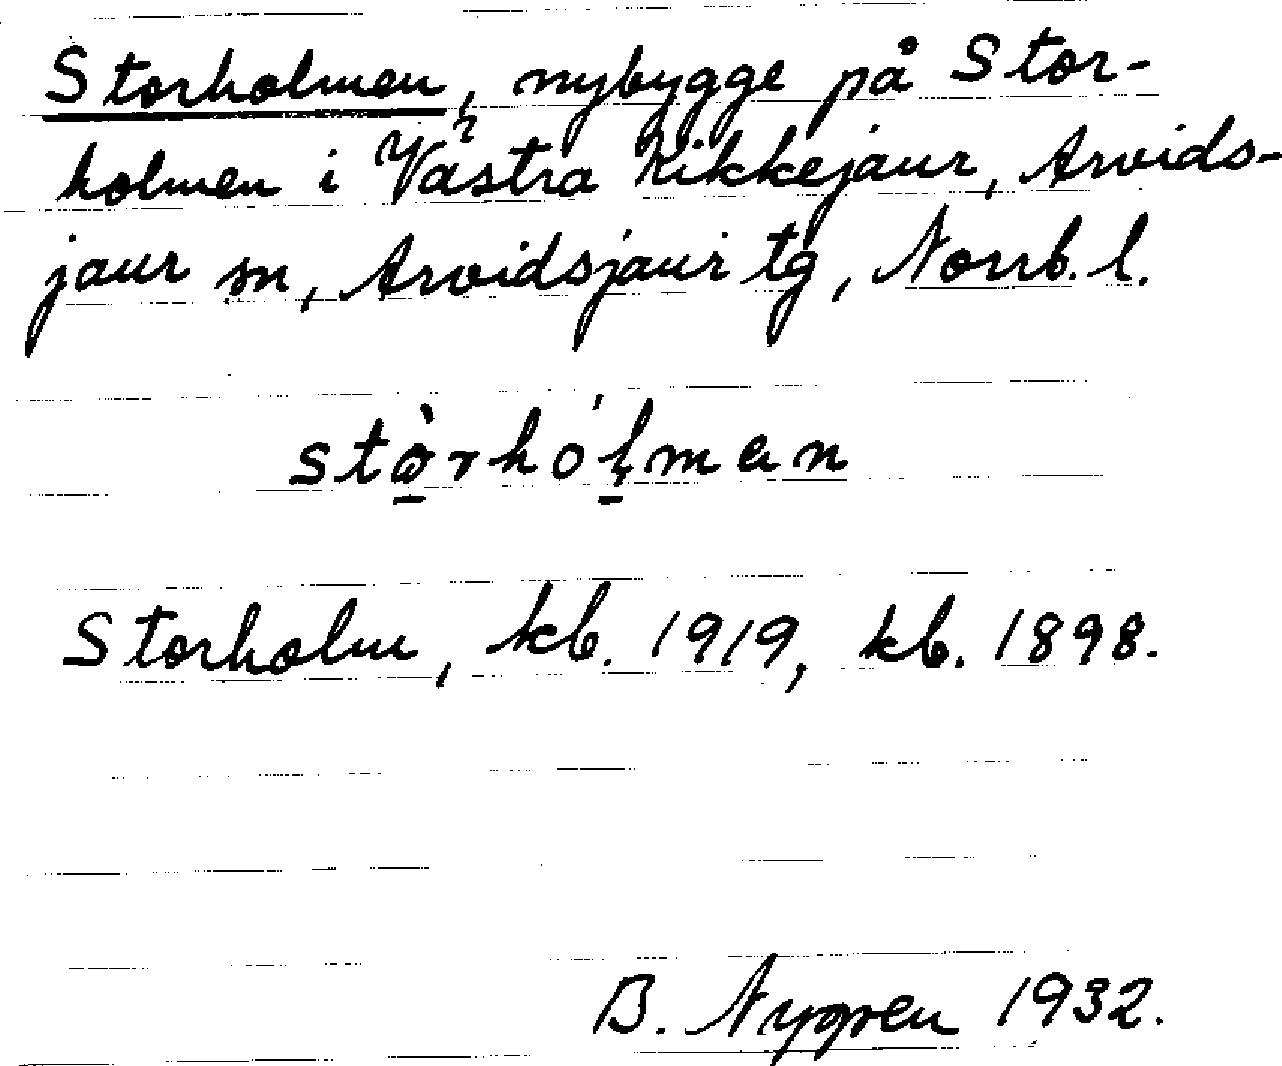 Storholmen, nybygge på Stor-
holmen i Västra Kikkejaur, Arvids-
jaur sn, Arvidsjaur tg, Norrb. l.
stò̱rhó̱ḷman
Storholm, kb. 1919, kb. 1898.
B. Nygren 1932.